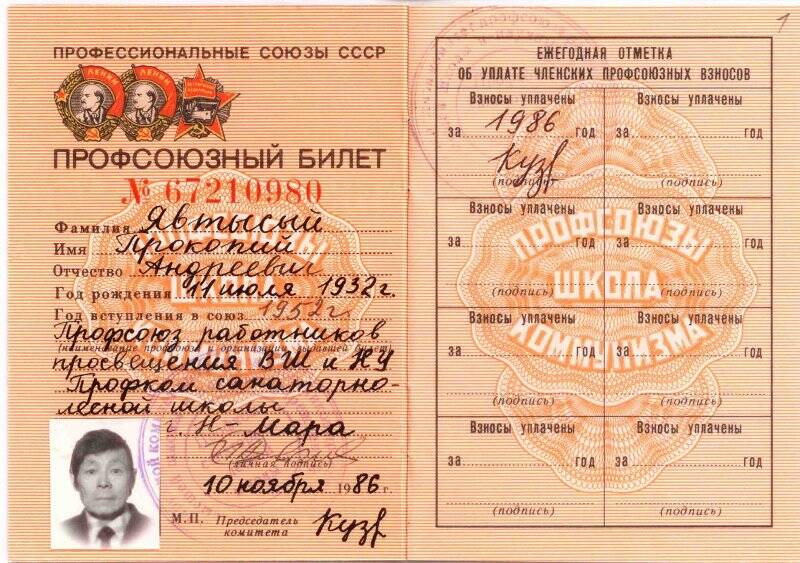 ПРОФЕССИОНАЛЬНЫЕ СОЮЗЫ СССР
ЛЕНИН
ЛЕНИН
ПРОФСОЮЗНЫЙ БИЛЕТ
№ 67210980
Фамилия Явтысый
Имя Прокопий
Отчество Андреевич
Год рождения 11 июля 1932 г.
Год вступления в союз 1952 г.
Профсоюз работников
(наименование профсоюза и организации выдавшей билет)
просвещения ВШ и НУ
Профком санаторно-
лесной школы
г. Н-Мара
(личная подпись)
10 ноября 1986 г.
М.П. Председатель
комитета
Кузв
1
ЕЖЕГОДНАЯ ОТМЕТКА
ОБ УПЛАТЕ ЧЛЕНСКИХ ПРОФСОЮЗНЫХ ВЗНОСОВ
Взносы уплачены Взносы уплачены
за 1986 год за год
Кузв
(подпись) (подпись)
Взносы уплачены Взносы уплачены
за год за год
(подпись) (подпись)
Взносы уплачены Взносы уплачены
за год за год
(подпись) (подпись)
Взносы уплачены Взносы уплачены
за год за год
(подпись) (подпись)
ПРОФСОЮЗЫ
ШКОЛА
КОММУНИЗМА